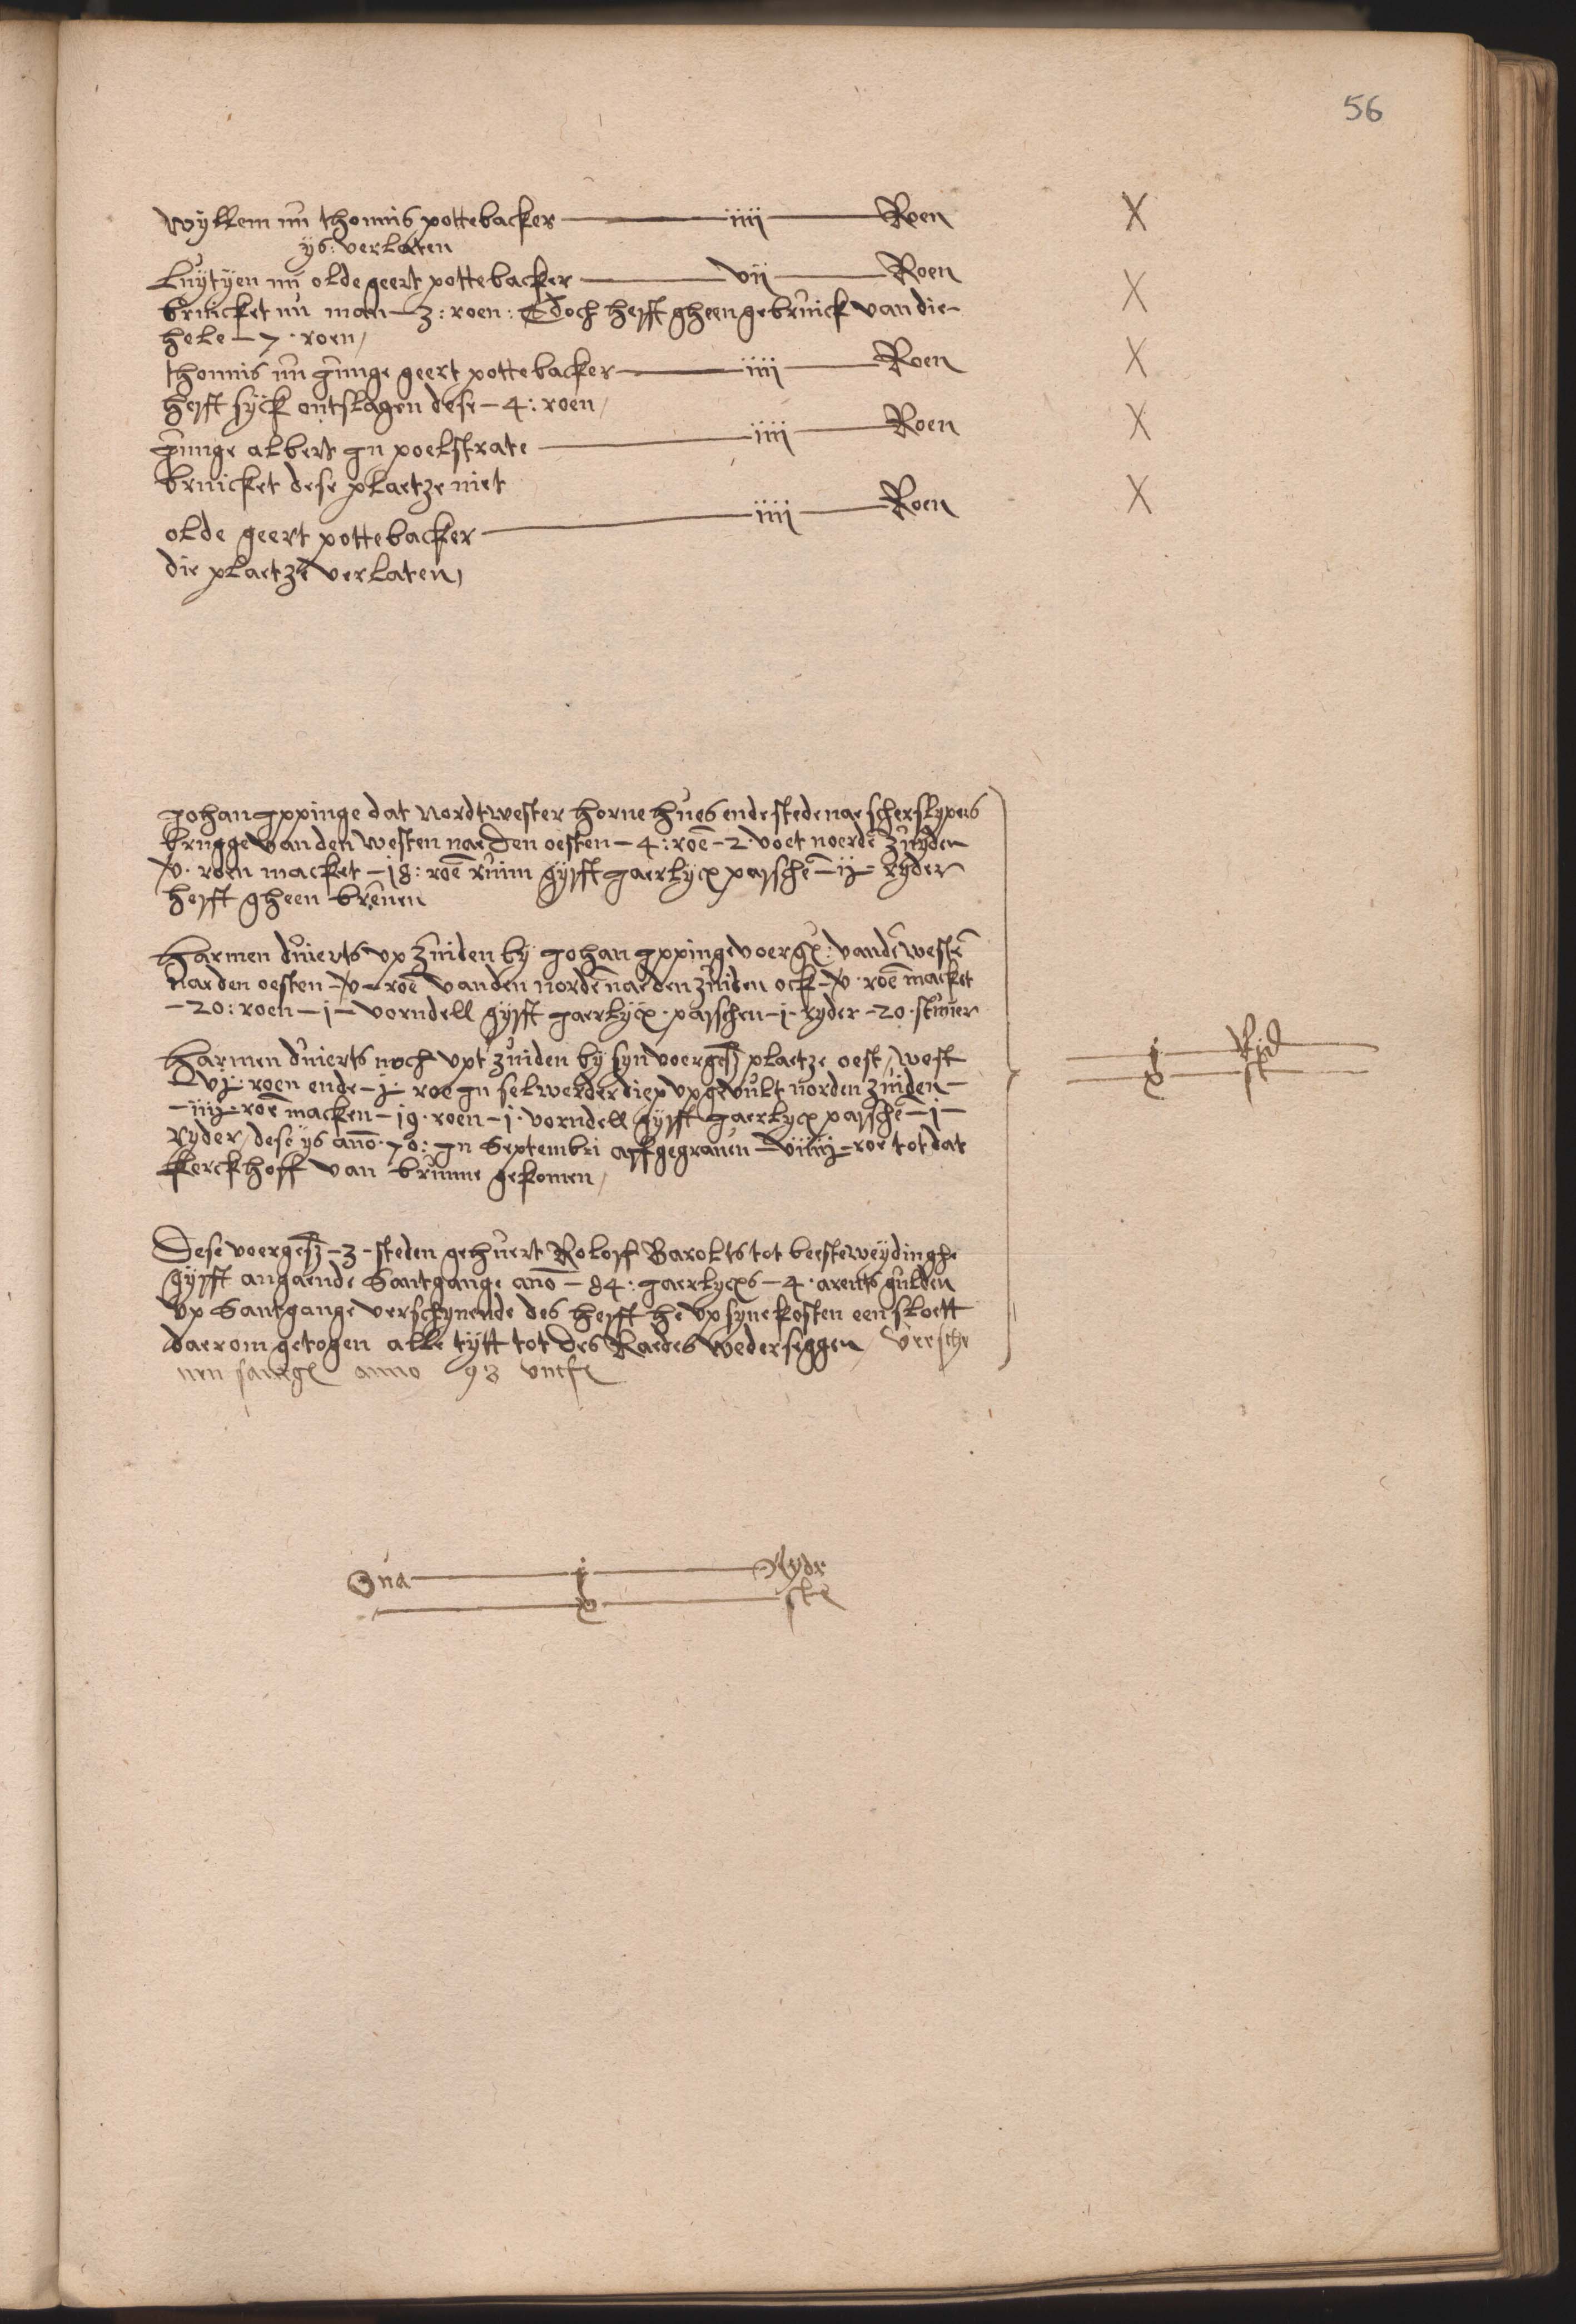 56
Wyllem nu thonnis pottebacker — iiii — Roen X
ys: verlaten
Luytyen nu olde geert pottebacker — vii — Roen X
bruicket nu man – 3: roen: Edoch hefft gheen gebruick van die
hele – 7 · roen/
thonnis nu junge geert pottebacker — iiii — Roen X
hefft syck ontslagen dese – 4: roen/
junge albert jn poelstrate — iiii — Roen X
bruicket dese plaetze niet
olde geert pottebacker — iiii — Roen X
die plaetze verlaten,
Johan Ippinge dat Nordtwester horne hues ende stede nae scherslypers
brugge van den westen nae den oesten – 4: roē – 2 · voet noerdē zuyden
v · roen macket – 18: roē ruim gyfft jaerlycx passchē – ij – ryder
hefft gheen breuen
Harmen duierts vp zuiden by Johan Ippinge voergs: vandē westē
nae den oesten – v – roē van den nordē nae den zuiden ock – v · roē macket
– 20: roen – i – vorndell gyfft jaerlycx · passchen – i · ryder – 20 · stuuer
Harmen duierts noch vpt zuiden by syn voergesz plaetze oest/west
– vj · roen ende – j · roe jn selwerderdiep vpgevult norden zuiden –
– iiij – roē macken – 19 · roen – i · vorndell gyfft jaerlycx passchē – i –
Ryder/ dese ys anō · 70: jn Septembri affgegrauen – – roe tot dat
kerckhoff van brunne gekomen/
Dese voergesz – 3 – steden gehuert Roloff Barolts tot beesteweydinghe
gyfft angaende Santgange anō – 84 · jaerlycxs – 4 · arents gulden
vp Santgange verschynende des hefft he vp syne kosten een sloett
daerom getogen alle tytt tot des Raedes wederseggen/ versche
nen santg anno 93 vntf
j — Rid
x — st
Sua — j — Rydr
x — st